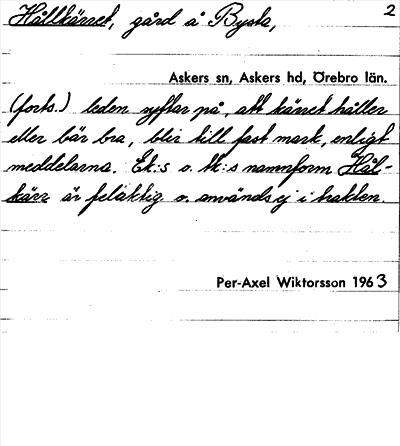 Hållkärret, gård å Bysta, 2
Askers sn, Askers hd, Örebro län.
(forts.) leden syftar på, att kärret håller
eller bär bra, blir till fast mark, enligt
meddelarna. Ek:s o. tk:s namnform Hål-
kärr är felaktig o. användes ej i trakten.
Per-Axel Wiktorsson 1963